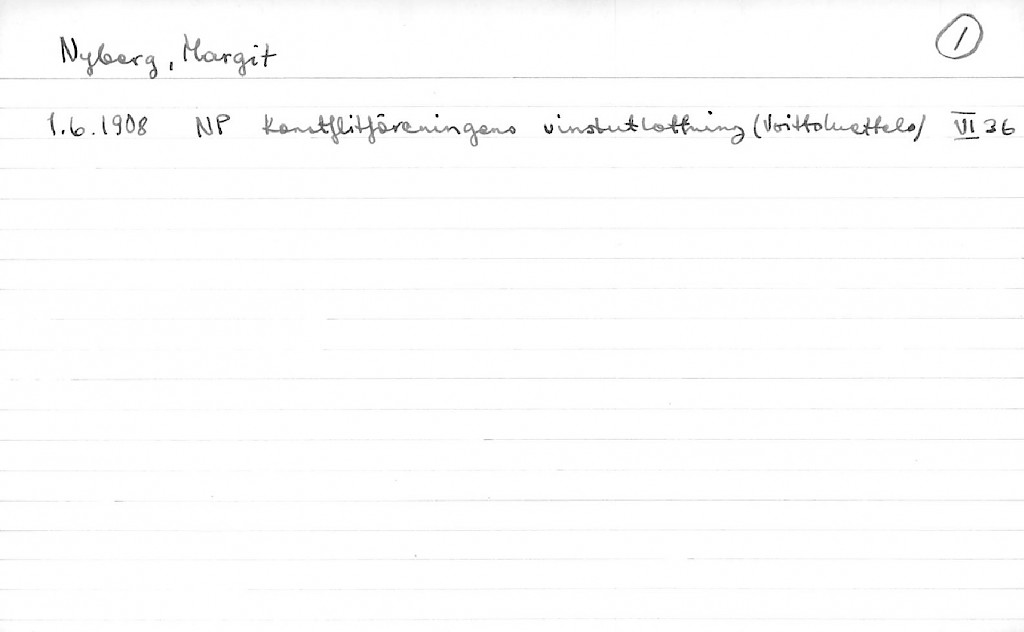 Nyberg, Margit
1
1.6.1908 NP Konstflitföreningens vinstutlottning (Voittoluettelo) VI 36